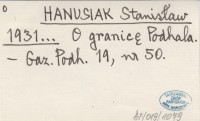 HANUSIAK Stanisław
1931... O granicę Podhala.
- Gaz. Podh. 19, nr 50.